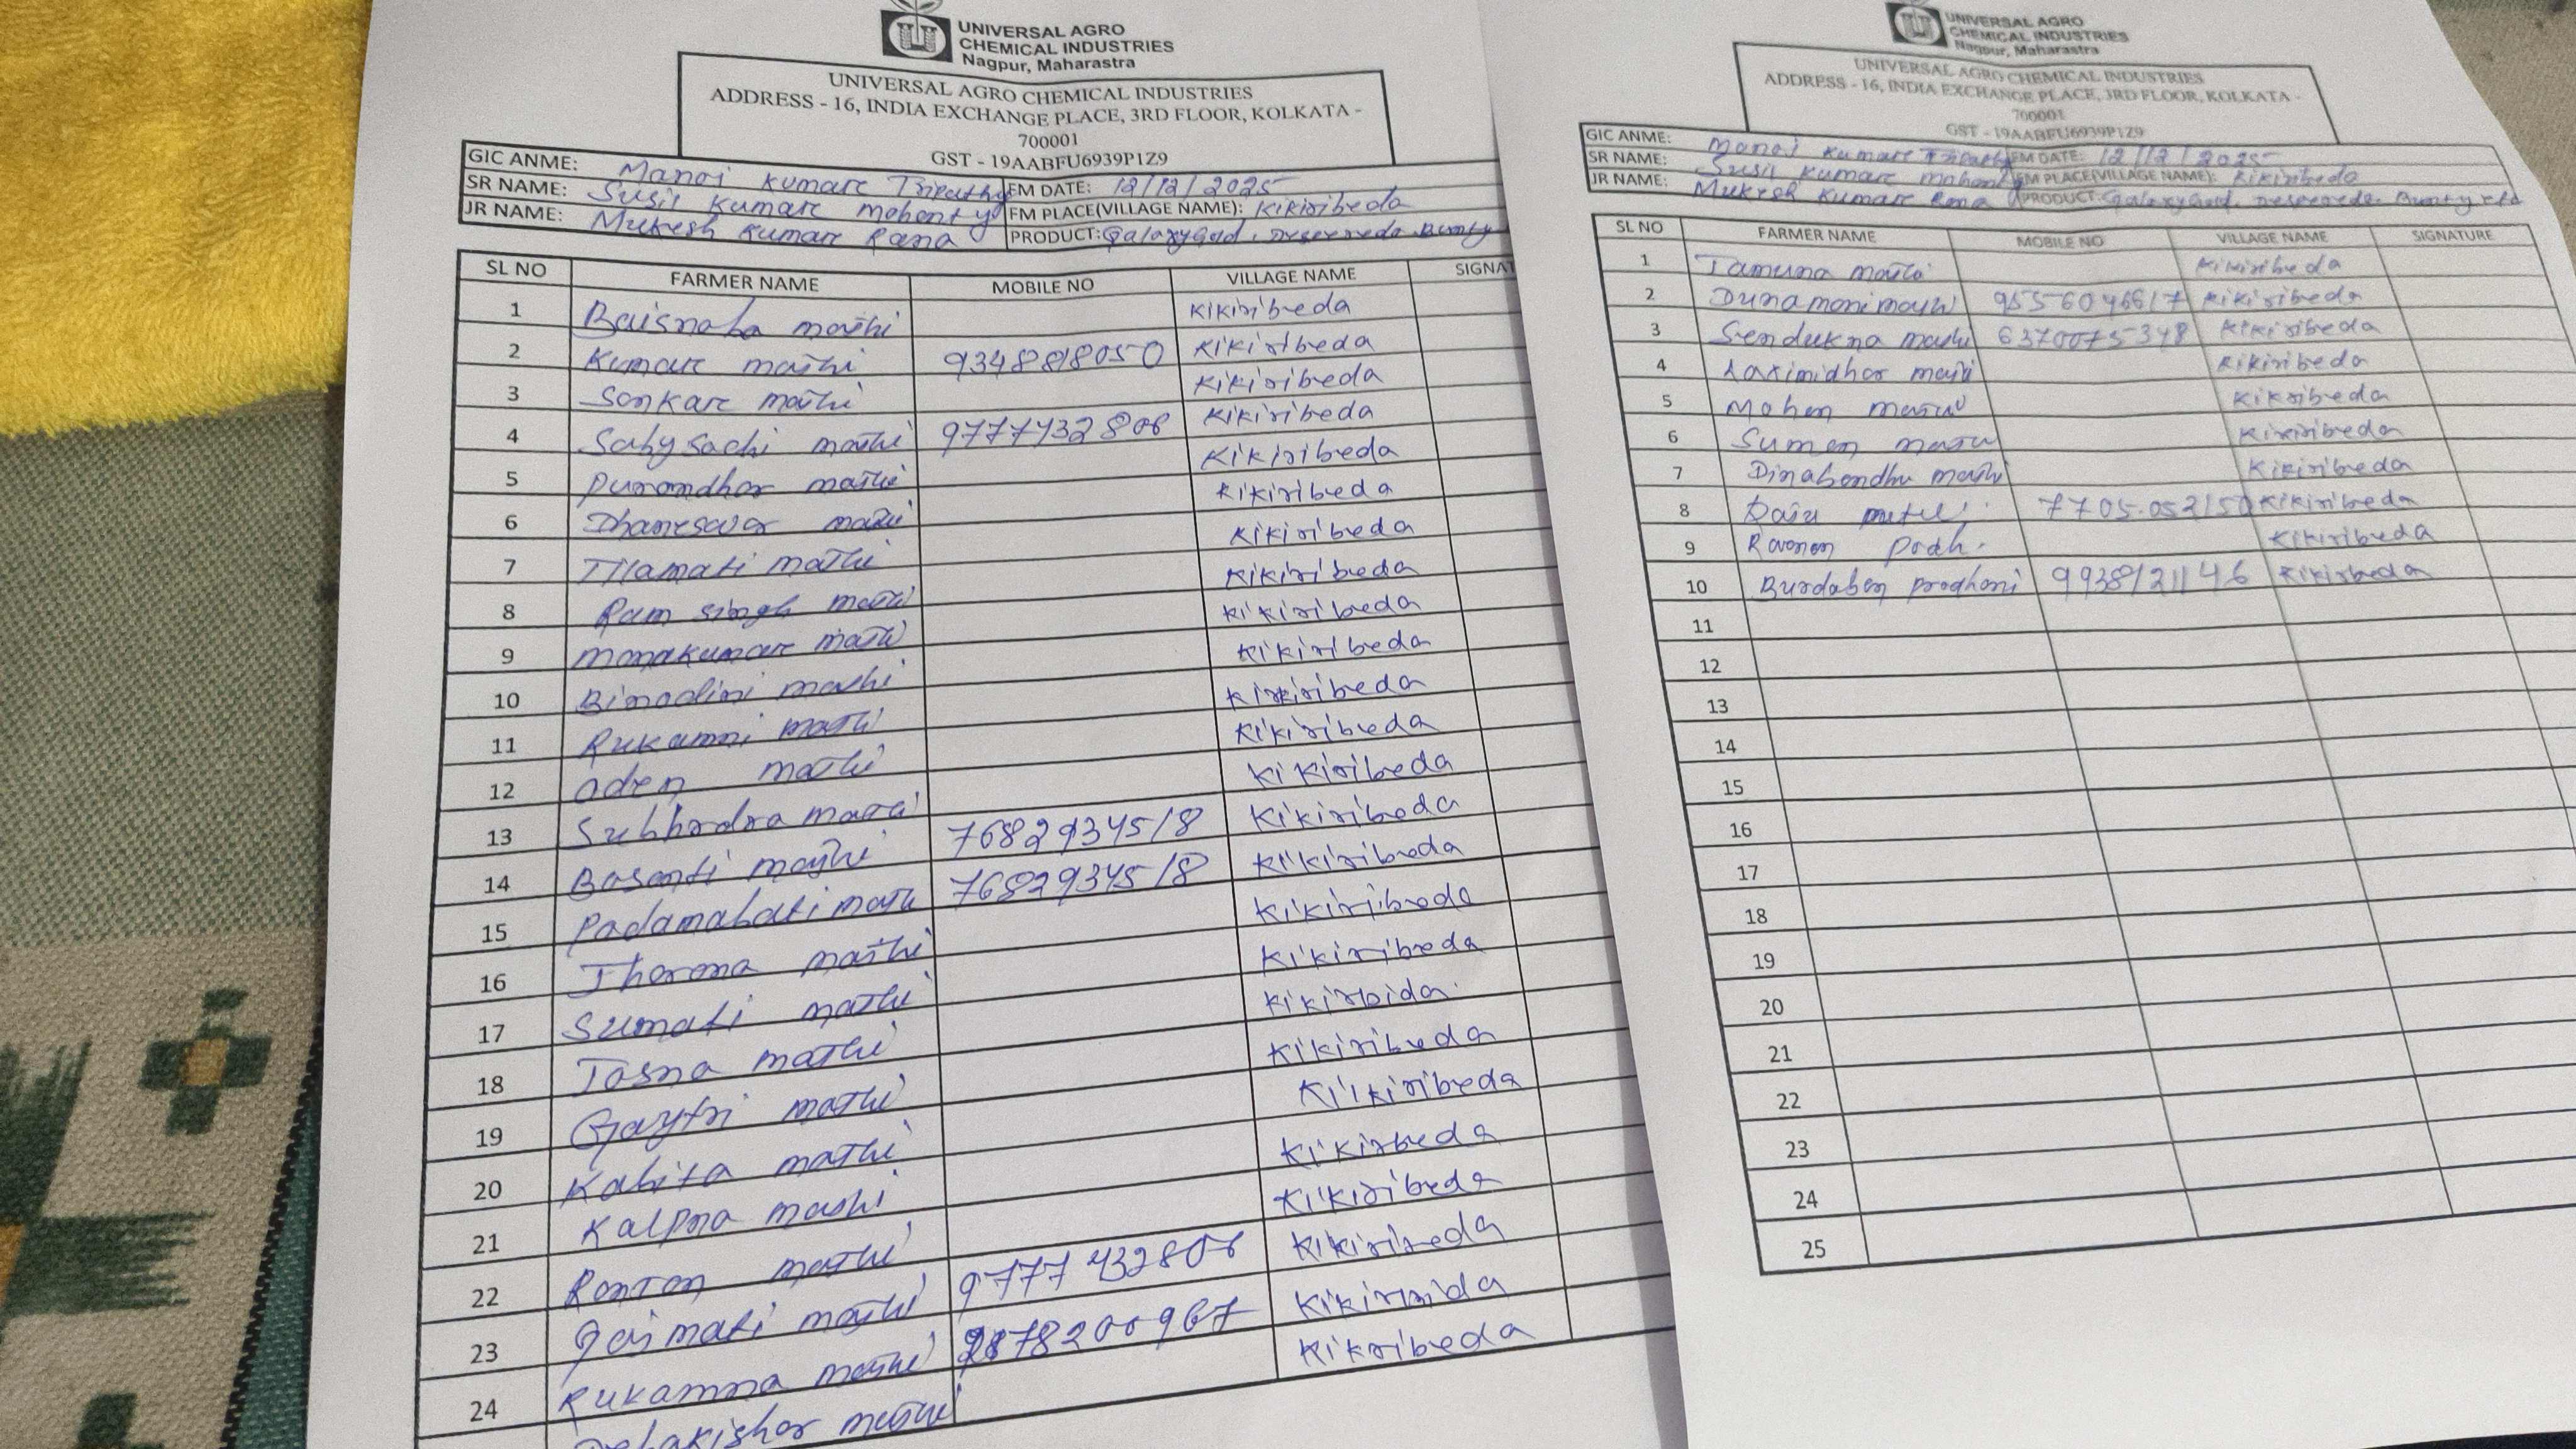 UNIVERSAL AGRO
CHEMICAL INDUSTRIES
Nagpur, Maharastra
UNIVERSAL AGRO CHEMICAL INDUSTRIES
ADDRESS - 16, INDIA EXCHANGE PLACE, 3RD FLOOR, KOLKATA -
700001
GST - 19AABFU6939P1Z9
GIC ANME: Manoj Kumare Tripathy FM DATE: 12/12/2025
SR NAME: Susil Kumare Mohenty FM PLACE(VILLAGE NAME): Kikiribeda
JR NAME: Mukesh Kumare Rana PRODUCT: Bunty
SL NO FARMER NAME MOBILE NO VILLAGE NAME SIGNAT
1 Baisnaba mathi Kikiribeda
2 Kumare mathi 9348818050 Kikiribeda
3 Sonkare mathi Kikiribeda
4 Sabysachi mathi 9777432808 Kikiribeda
5 Purondhor mathi Kikiribeda
6 Dhaneswor mathi Kikiribeda
7 Tilamati mathi Kikiribeda
8 Ram singh mathi Kikiribeda
9 monakumare mathi Kikiribeda
10 Binodini mathi Kikiribeda
11 Rukamni mathi Kikiribeda
12 aden mathi Kikiribeda
13 Subhordra Kikiribeda
14 Basonti majhi 7682934518 Kikiribeda
15 Padamabati 7682934518 Kikiribeda
16 Thorona mathi Kikiribeda
17 Sumati mathi Kikiribeda
18 Tosna mathi Kikirbida
19 Gaytri mathi Kikiribeda
20 Kabita mathi Kikiribeda
21 Kalpna mashi Kikirbeda
22 Ronton mathi Kikiribeda
23 Gajmati majhi 9777432808 Kikiribeda
24 Rukamna mathi
Debakishor mathi Kikribeda
UNIVERSAL AGRO
CHEMICAL INDUSTRIES
Nagpur, Maharastra
UNIVERSAL AGRO CHEMICAL INDUSTRIES
ADDRESS - 16, INDIA EXCHANGE PLACE, 3RD FLOOR, KOLKATA -
700001
GST - 19AABFU6939P1Z9
GIC ANME: Manoj Kumare Tripathy FM DATE: 12/12/2025
SR NAME: Susil Kumare Mohenty FM PLACE(VILLAGE NAME): Kikiribeda
JR NAME: Mukesh Kumare Rana PRODUCT: Bunty etc
SL NO FARMER NAME MOBILE NO VILLAGE NAME SIGNATURE
1 Tamuna Kikiribeda
2 Dunamoni 9556046617 Kikiribeda
3 Sendukna mashi 6370075348 Kikiribeda
4 Laximidhor Kikiribeda
5 Mohen Kikribeda
6 Sumon Kikiribeda
7 Dinabondhu mathi Kikiribeda
8 Raju Kikiribeda
9 Ravonen Kikiribeda
10 Burdaben prodhani 9938121146 Kikirbeda
11
12
13
14
15
16
17
18
19
20
21
22
23
24
25